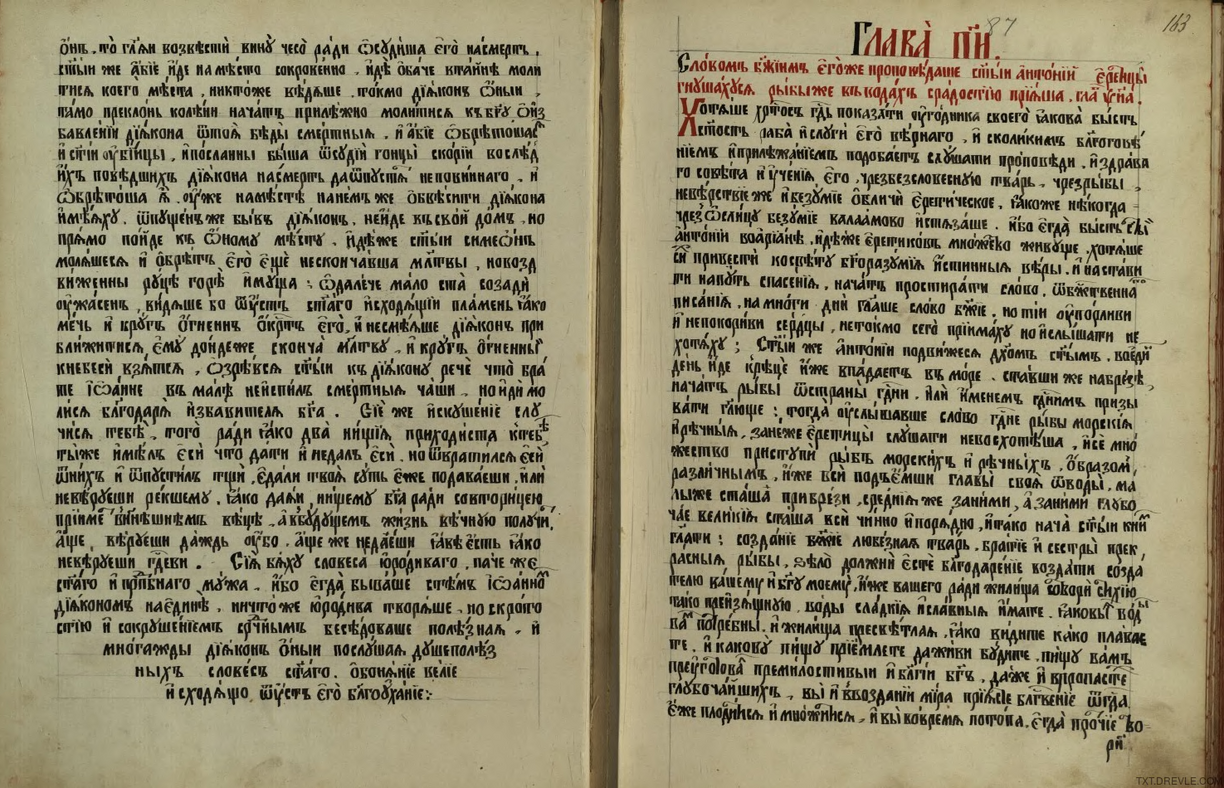 ѻ҆нъ. то гл҃ѧи возвѣсти вину̀ чесо̀ ради ѿсудиша є҆го̀ насмерть.
ст҃ыи же а҆бїе и҆де намѣсто сокровенно. и҆дѣ ѻ҆баче втаи́нѣ моли
тисѧ коего̀ мѣста, никто́же вѣдѧше. то́кмо дїѧконъ ѻ҆ныи.
тамо преклонь колѣни начатъ прилѣжно молитисѧ къ бг҃у. ѡ҆ из
бавлении дїѧкона ѿтоѧ̀ бѣды̀ смертныѧ. и҆ а҆бїе ѡ҆брѣтошасѧ
и҆ ст҃іи оу҆бїицы, и҆посланны быша ѿсудїи гонцы̀ скорїи вослѣд
и҆хъ поведшихъ дїѧкона насмерть даѿпустѧ̀ неповиннаго. и҆
ѡ҆брѣтоша ѧ҆. оу҆́же намѣстѣ нанемъже ѻ҆бвѣсити дїѧкона
и҆мѣѧху. ѿпущенъже бывъ дїѧконъ. неи́де въ свои́ до́мъ. но
прѧмо поиде къ ѻ҆ному мѣсту. и҆дѣже ст҃ыи симеѡ́нъ
молѧшесѧ и҆ ѻ҆брѣтъ є҆го̀ є҆щѐ нескончавша мл҃твы, новозд
виженны руцѣ горѣ̀ и҆муща: ѿдалече мало ста̀ созадѝ
оу҆жасенъ. видѧше бо ѿу҆стъ ст҃аго и҆сходѧщіи пламень ꙗ҆ко
мечь и҆ кругъ ѻ҆гненнъ ѻ҆крⷭ҇тъ є҆го̀. и҆ несмѣѧше дїѧконъ при
ближитисѧ. є҆му̀ дондеже сконча̀ мл҃тву. и҆ кругъ ѻ҆гненныи
кнебеси взѧтсѧ. ѡ҆зрѣвсѧ ст҃ыи къ дїѧкону речѐ что бра
те і҆ѡа́нне въ малѣ неи҆спилъ смертныѧ чаши. но и҆ди мо
лисѧ бл҃годарѧ̀ и҆збавителѧ бг҃а. сїѐ же и҆скушенїе слу
чисѧ тебѣ̀. того̀ ради ꙗ҆ко два̀ нищїѧ приходиста ктебѣ̀
тыже и҆мѣлъ є҆си что дати и҆ недалъ є҆си. но ѿвратилсѧ є҆си
ѿнихъ и҆ ѿпустилъ тщѝ. є҆дали твоѧ̀ суть є҆же подаваеши. и҆ли
невѣруеши рекшему. ꙗ҆ко даѧи. нищему бг҃а ради совторицею
прїиметъ внн҃ешнемъ вѣцѣ. а҆вбудущемъ жизнь вѣчную получи.
а҆ще вѣруеши даждь оу҆бо. а҆ще же недаеши ꙗ҆вѣ є҆сть ꙗ҆ко
невѣруеши гдⷭ҇еви. Сїѧ̀ бѧху словеса ю҆родиваго. паче же
ст҃аго и҆ прⷣбнаго мужа. и҆бо є҆гда быва́ше ст҃ѣмъ і҆ѡа́нномъ
дїѧкономъ наедине. ничто́же ю҆родива творѧше. но скрото
стїю и҆ сокрушенїемъ срⷣчнымъ бесѣдоваше полѣзнаѧ. и҆
многажды дїѧконъ ѻ҆ныи послушаѧ душеполѣз
ныхъ словесъ ст҃аго. ѻ҆бонѧнїе велїе
и҆сходѧщо ѿу҆стъ є҆го̀ бл҃гоуханїе:
163
87
Глава̀ пи҃.
Словомъ бж҃їимъ є҆го́же проповѣдаше ст҃ыи а҆нтонїи є҆ретицы
гнушахусѧ рыбыже въ водахъ срадостїю прїѧша. гла
Хотѧше хрⷭ҇тосъ гдⷭ҇ь показати оу҆годника своего̀ какова бысть
ст҃ость раба и҆слуги є҆го̀ вѣрнаго, и҆ сколикимъ бл҃гоговѣ
нїемъ и҆прилѣжанїемъ подобаетъ слушати проповѣди. и҆здрава
го совѣта и҆оу҆ченїѧ є҆го. чрезбезсловесную тварь. чрезрыбы.
невѣрствїе же и҆безумїе ѻ҆бличи є҆ретическое. ꙗ҆коже нѣкогда
чрез ѻ҆слицу безумїе валаамово и҆стѧзаше. и҆бо є҆гда бысть сеи
а҆нтонїи воарїанѣ. и҆дѣже є҆ретиковъ множество живуще. хотѧше
си привести косвѣту бг҃оразумїѧ и҆стинныѧ вѣры. и҆настави
ти напуть спасенїѧ. начатъ простирати слово. ѿбжⷭ҇твенна
писанїѧ. на многи дни гл҃аше слово бж҃їе. но тіи оу҆порливи
и҆ непокориви сердцы, нетокмо сего прїимаху но и҆слышати не
хотѧху; ст҃ыи же а҆нтонїи подвижесѧ дх҃омъ ст҃ымъ. воеди
день и҆де крѣцѣ и҆же впадаетъ въ море. ставши же набрезѣ
начатъ рыбы ѿстраны гдⷭ҇ни. и҆ли и҆менемъ гдⷭ҇нимъ призы
вати гл҃юще: тогда оу҆слышавше слово гдⷭ҇не рыбы морскїѧ
и҆рѣчныѧ. занеже є҆ретицы слушати невосхотѣша. и҆се мно
жество приступи рыбъ морскихъ и҆ рѣчныхъ. ѻ҆бразом
различнымъ. и҆́же вси подъе́мши главы своѧ̀ ѿводы. ма
лыже сташа̀ при брези. среднїѧ же заними. а҆ заними глубо
чае великїѧ сташа вси чинно и҆порѧдно. и҆тако нача ст҃ыи кним
гл҃ати: созданїе бж҃їе любезнаѧ тварь. братїе и҆ сестры прек
расныѧ рыбы. ѕѣло̀ должни є҆сте бл҃годаренїе воздати созда
телю вашему и҆бг҃у моему. и҆же вашего ради жилища сотвори стихїю
тако преизѧщную. воды сладкїѧ и҆славныѧ и҆мате. таковы вод
ва потребны. и҆жилища пресвѣтлаѧ. ꙗ҆ко видите како плавае
те. и҆ какову пищу прїемлете даживи будите. пищу вамъ
преуготова премилостивыи и҆бл҃гіи бг҃ъ. даже и҆ впропасте
глубочаишихъ. вы и҆ ввозданїи мира прїѧсте бл҃гвенїе ѿгда.
є҆же плодитисѧ и҆множитисѧ. и҆ вы вовремѧ потопа. є҆гда прочїе тво
ри
TXT.DREVLE.COM